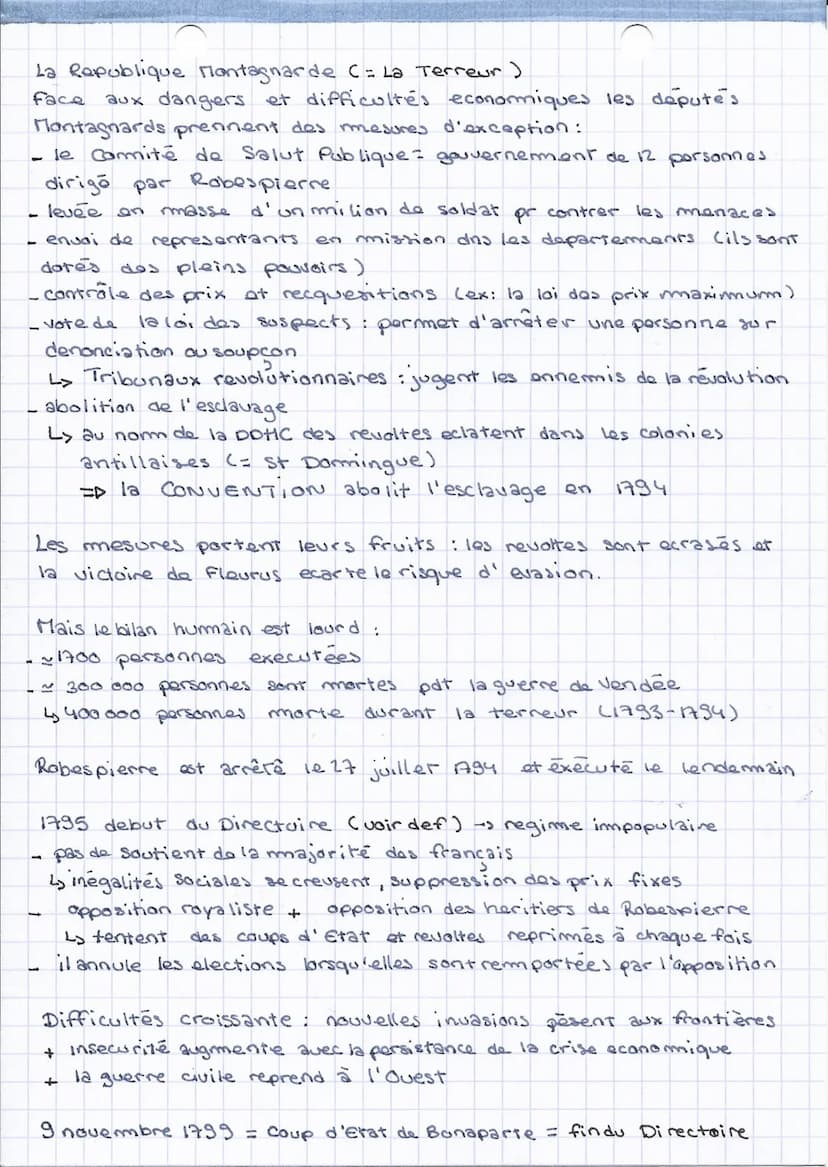 La Republique Montagnarde (= La Terreur)
Face aux dangers et difficultés economiques les députés
Montagnards prennent des mesures d'exception :
- le Comité de Salut Publique = gouvernement de 12 personnes
dirigé par Robespierre
- levée en masse d'un milion de soldat pr contrer les menaces
- envoi de representants en mission dns les departements (ils sont
dotés des pleins pouvoirs)
- contrôle des prix et recquesitions (ex: la loi des prix maximum)
- vote de la loi des suspects : permet d'arrêter une personne sur
denonciation ou soupçon
↳ Tribunaux revolutionnaires : jugent les ennemis de la révolution
- abolition de l'esclavage
↳ au nom de la DDHC des revoltes eclatent dans les colonies
antillaises (= St Domingue)
=> la CONVENTION abolit l'esclavage en 1794
Les mesures portent leurs fruits : les revoltes sont ecrasés et
la victoire de Fleurus ecarte le risque d'evasion.
Mais le bilan humain est lourd :
- ≃ 1700 personnes executées
- ≃ 300 000 personnes sont mortes pdt la guerre de Vendée
↳ 400 000 personnes morte durant la terreur (1793-1794)
Robespierre est arrêté le 27 juillet 1794 et éxécuté le lendemain
1795 debut du Directoire (voir def) → regime impopulaire
- pas de soutient de la majorité des français
↳ inégalités sociales se creusent, suppression des prix fixes
- opposition royaliste + opposition des heritiers de Robespierre
↳ tentent des coups d'Etat et revoltes reprimés à chaque fois
- il annule les elections lorsqu'elles sont remportées par l'opposition
Difficultés croissante : nouvelles invasions pèsent aux frontières
+ insecurité augmente avec la persistance de la crise economique
+ la guerre civile reprend à l'Ouest
9 novembre 1799 = Coup d'Etat de Bonaparte = fin du Directoire